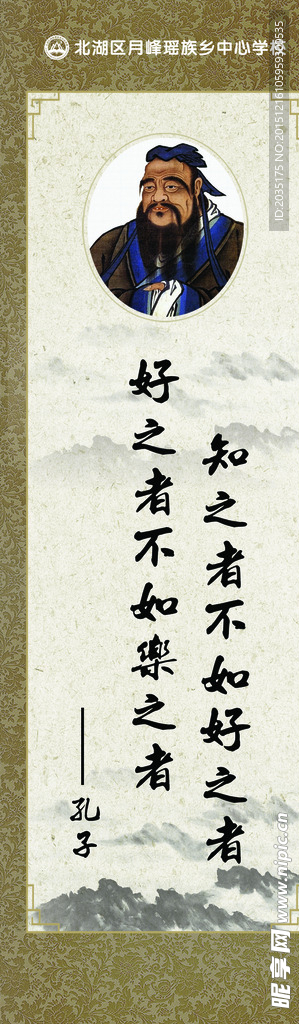 北湖区月峰瑶族乡中心学校
知之者不如好之者
好之者不如樂之者
——孔子
昵享网 www.nipic.cn